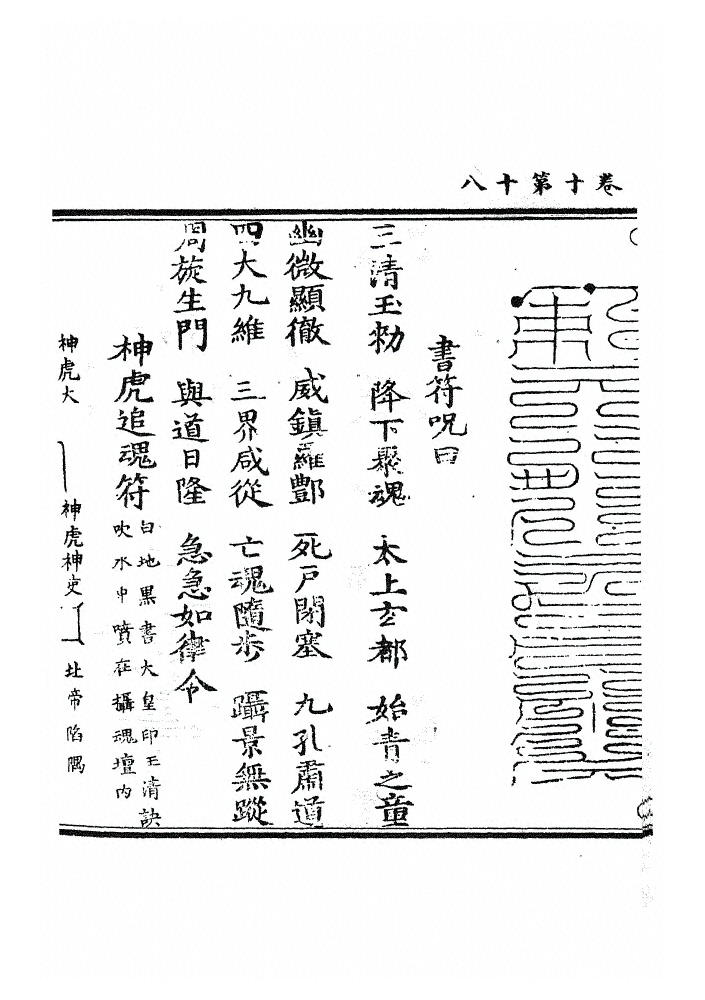 卷十第十八
書符呪曰
三清玉勑 降下聚魂 太上玄都 始青之童
幽微顯徹 威鎮羅酆 死戶閉塞 九孔肅道
四大九維 三界咸從 亡魂隨步 躡景無蹤
周旋生門 與道日隆 急急如律令
神虎追魂符
白地黑書大皇印王清訣
吹水中噴在攝魂壇內
神虎大 神虎神吏 北帝陷隅